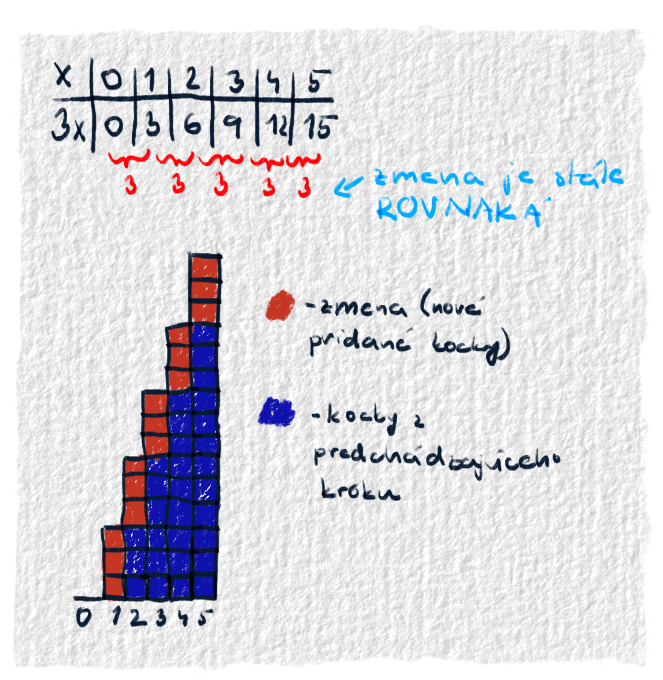 x 0 1 2 3 4 5
3x 0 3 6 9 12 15
3 3 3 3 3
zmena je stále
ROVNAKÁ
- zmena (nové
pridané kocky)
- kocky z
predchádzajúceho
kroku
0 1 2 3 4 5